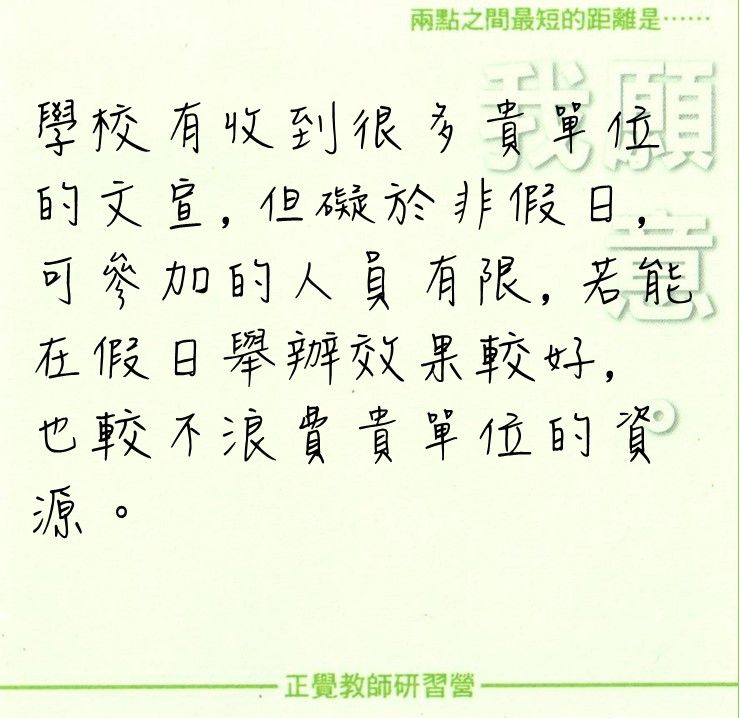 兩點之間最短的距離是……
我願
意。
學校有收到很多貴單位
的文宣，但礙於非假日，
可參加的人員有限，若能
在假日舉辦效果較好，
也較不浪費貴單位的資
源。
正覺教師研習營